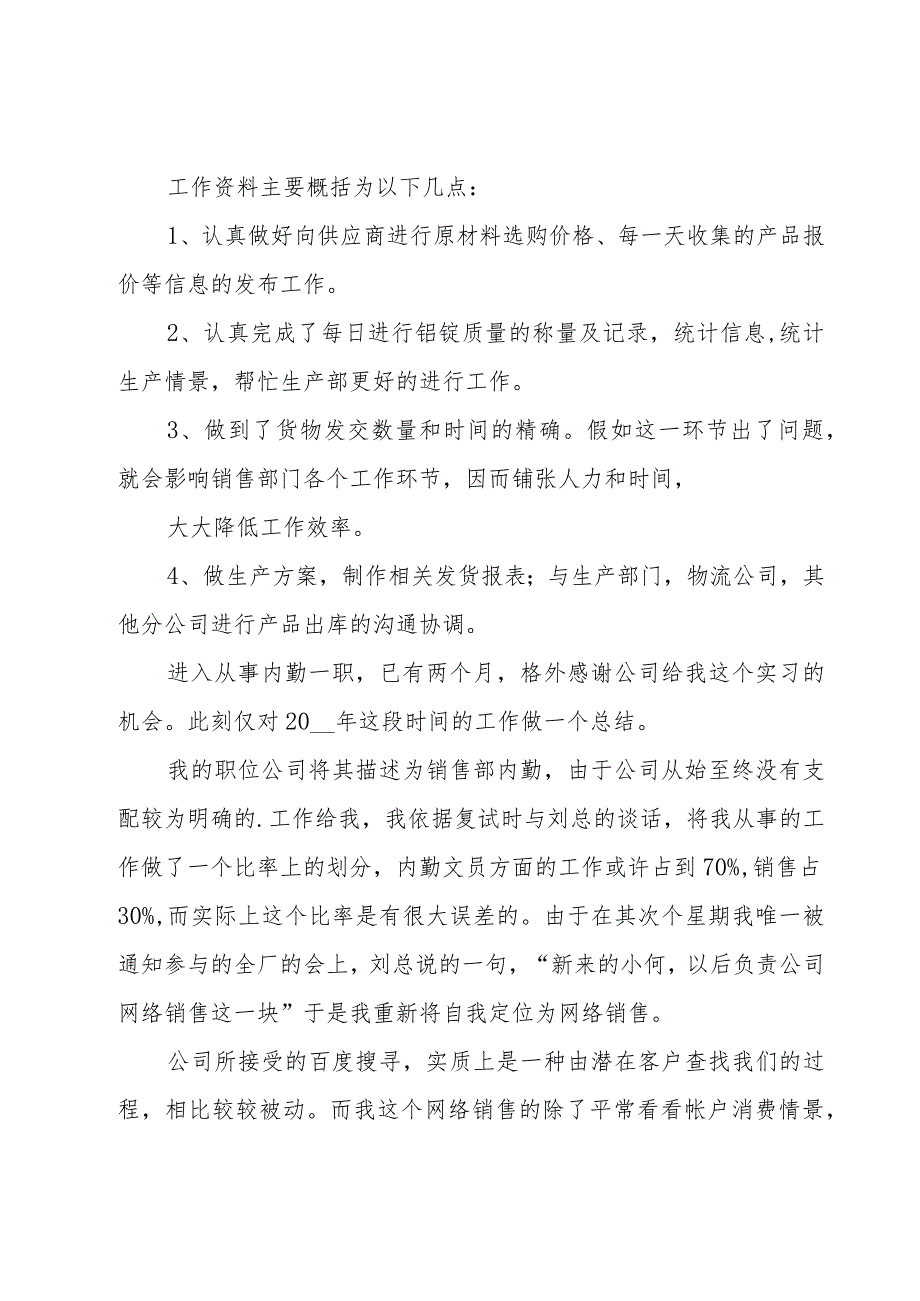 工作资料主要概括为以下几点：
1、认真做好向供应商进行原材料选购价格、每一天收集的产品报
价等信息的发布工作。
2、认真完成了每日进行铝锭质量的称量及记录，统计信息,统计
生产情景，帮忙生产部更好的进行工作。
3、做到了货物发交数量和时间的精确。假如这一环节出了问题，
就会影响销售部门各个工作环节，因而铺张人力和时间，
大大降低工作效率。
4、做生产方案，制作相关发货报表；与生产部门，物流公司，其
他分公司进行产品出库的沟通协调。
进入从事内勤一职，已有两个月，格外感谢公司给我这个实习的
机会。此刻仅对 20__年这段时间的工作做一个总结。
我的职位公司将其描述为销售部内勤，由于公司从始至终没有支
配较为明确的.工作给我，我依据复试时与刘总的谈话，将我从事的工
作做了一个比率上的划分，内勤文员方面的工作或许占到 70%,销售占
30%,而实际上这个比率是有很大误差的。由于在其次个星期我唯一被
通知参与的全厂的会上，刘总说的一句，“新来的小何，以后负责公司
网络销售这一块”于是我重新将自我定位为网络销售。
公司所接受的百度搜寻，实质上是一种由潜在客户查找我们的过
程，相比较较被动。而我这个网络销售的除了平常看看帐户消费情景，